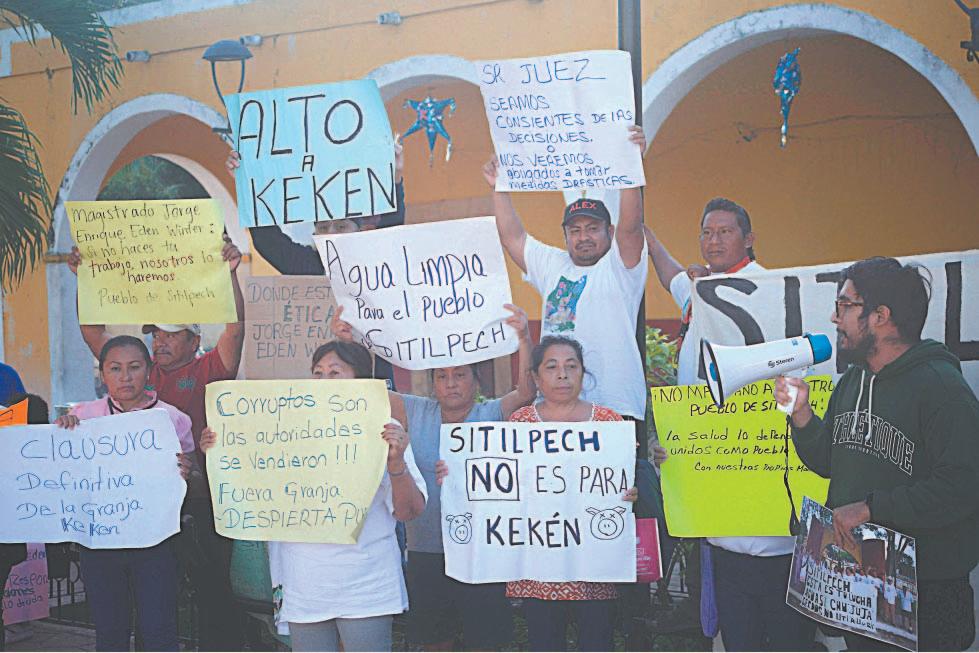 ALTO
A
KEKEN
SR JUEZ
SEAMOS
CONSIENTES DE LAS
DECISIONES.
O
NOS VEREMOS
obligados a tomar
medidas DRASTICAS
Magistrado Jorge
Enrique Eden Winter:
si no haces tu
trabajo, nosotros lo
haremos.
Pueblo de Sitilpech
DONDE EST
ÉTICA
JORGE EN
EDEN WIN
Agua LIMPIA
Para el Pueblo
SITILPECH
ALEX
SITI
Steren
Corruptos son
las autoridades
se vendieron !!!
Fuera Granja
DESPIERTA
Clausura
Definitiva
De la Granja
KeKen
SITILPECH
NO ES PARA
KEKÉN
¡NO MA
PUEBLO DE SIT
!
la salud lo
unidos como Pueblo
Con nuestras
SITILPECH
ESTA EN LUCHA